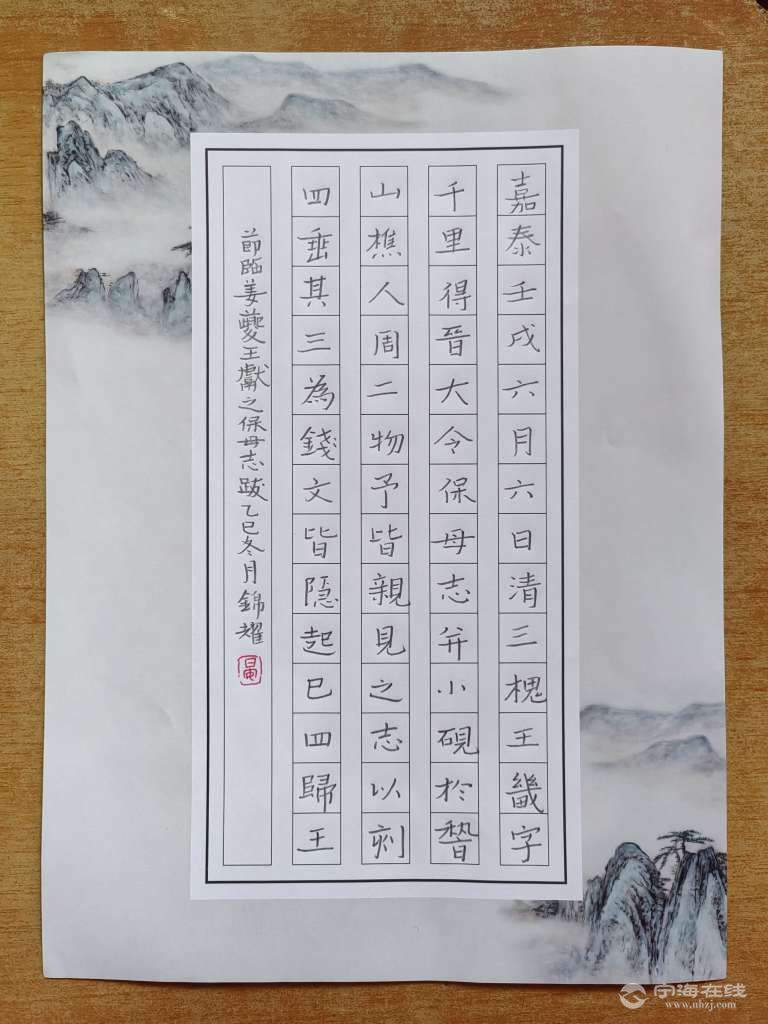 嘉泰壬戌六月六日清三槐王畿字
千里得晉大令保母志并小硯於稽
山樵人周二物予皆親見之志以刾
四垂其三為錢文皆隱起巳四歸王
節臨姜夔王獻之保母志跋乙巳冬月錦耀
宁海在线
www.nbzj.com